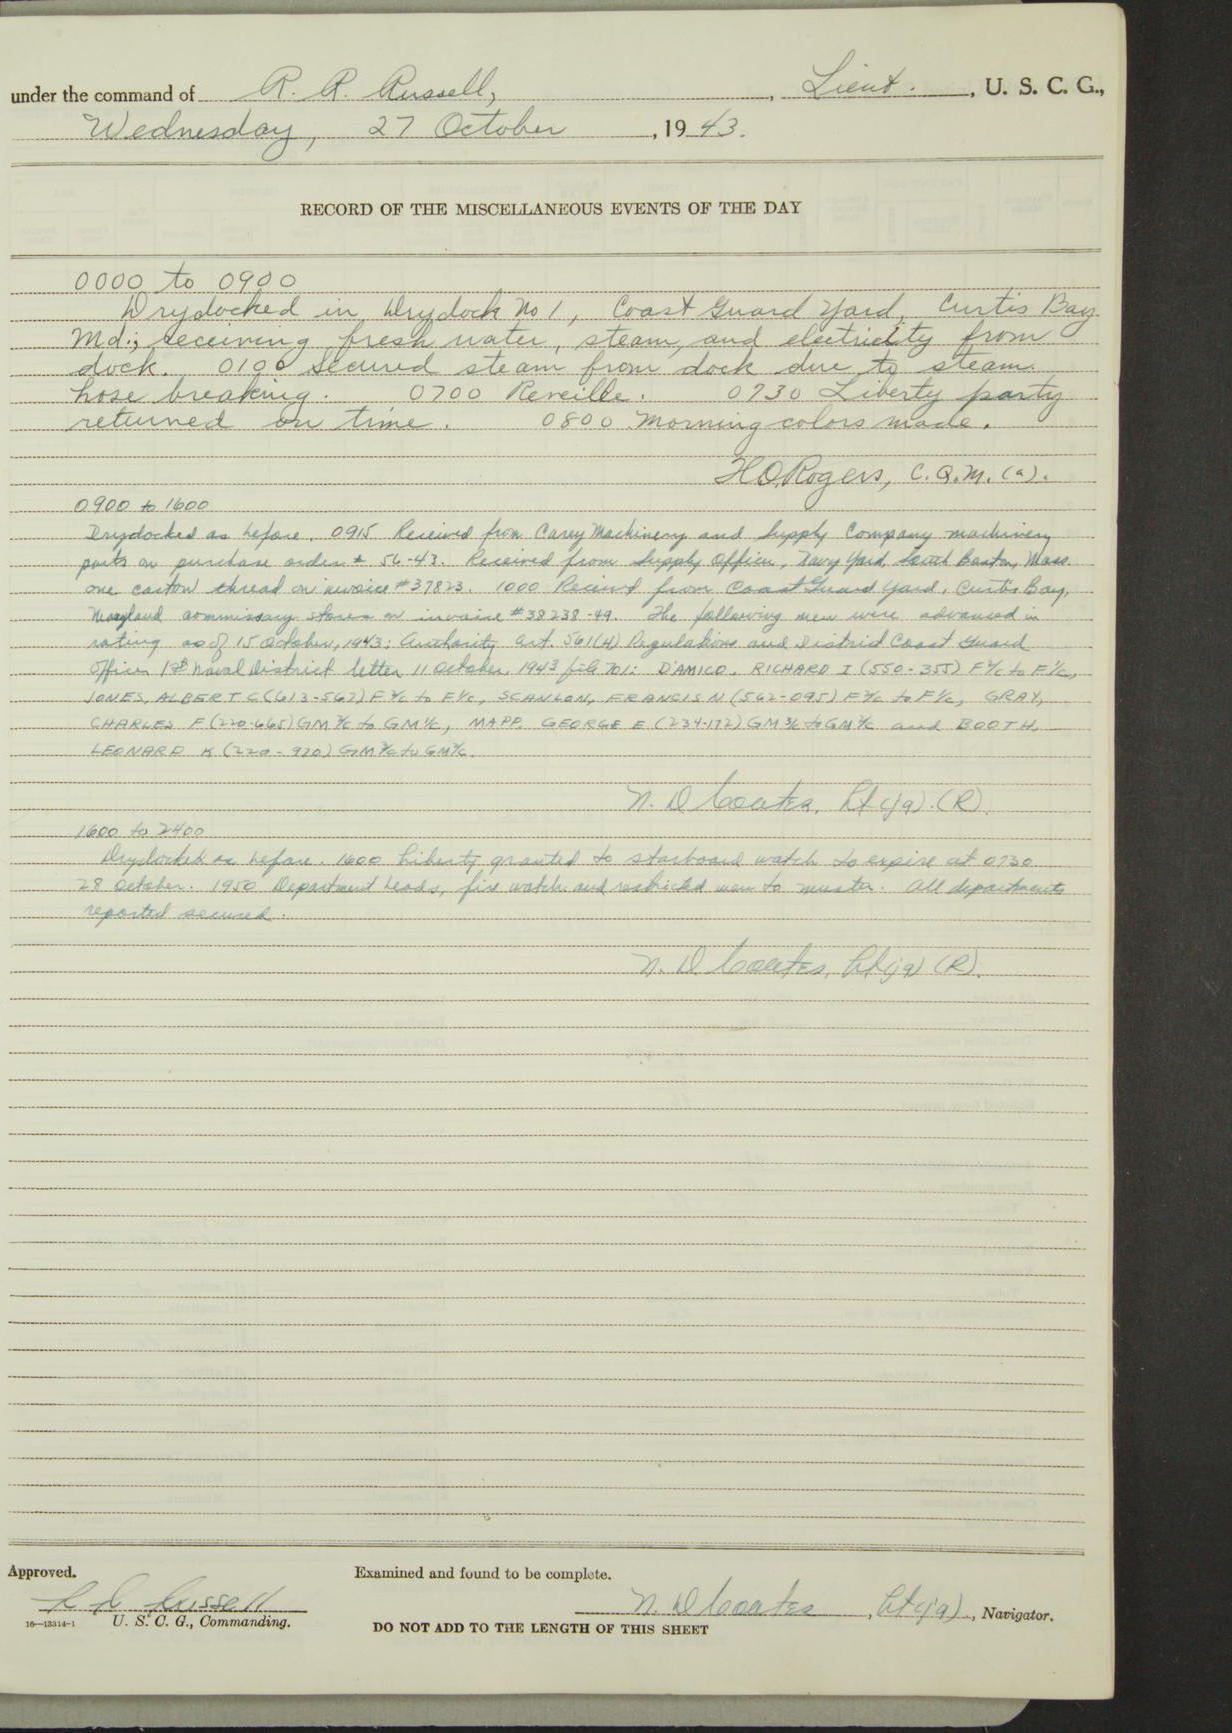 under the command of R. R. Russell, , Lieut. , U. S. C. G.,
Wednesday, 27 October , 1943.
RECORD OF THE MISCELLANEOUS EVENTS OF THE DAY
0000 to 0900
Drydocked in Drydock No 1, Coast Guard Yard, Curtis Bay
Md.; receiving fresh water, steam, and electricity from
dock. 0100 Secured steam from dock due to steam
hose breaking. 0700 Reveille. 0730 Liberty party
returned on time. 0800 Morning colors made.
H.O. Rogers, C.Q.M. (a).
0900 to 1600
Drydocked as before. 0915 Received from Carey Machinery and Supply Company machinery
parts on purchase order # 56-43. Received from Supply Officer, Navy Yard, South Boston, Mass.
one carton thread on invoice #37823. 1000 Received from Coast Guard Yard, Curtis Bay,
Maryland commissary stores on invoice #38238-44. The following men were advanced in
rating as of 15 October, 1943; Authority Art. 561(4) Regulations and District Coast Guard
Officer 1st Naval District letter 11 October, 1943 file 701: D'AMICO, RICHARD I (550-355) F2/c to F1/c,
JONES, ALBERT C (613-562) F2/c to F1/c, SCANLON, FRANCIS N (562-095) F2/c to F1/c, GRAY,
CHARLES F (220-665) GM2/c to GM1/c, MAPP, GEORGE E (234-172) GM3/c to GM2/c and BOOTH,
LEONARD K (220-920) GM3/c to GM2/c.
N. D Coates, Lt(jg).(R)
1600 to 2400
Drydocked as before. 1600 Liberty granted to starboard watch to expire at 0730
28 October. 1950 Department heads, fire watch and restricted men to muster. All departments
reported secured.
N. D Coates, Lt(jg) (R).
Approved. Examined and found to be complete.
R R Russell N. D Coates , Lt(jg) , Navigator.
16—13314-1 U. S. C. G., Commanding. DO NOT ADD TO THE LENGTH OF THIS SHEET